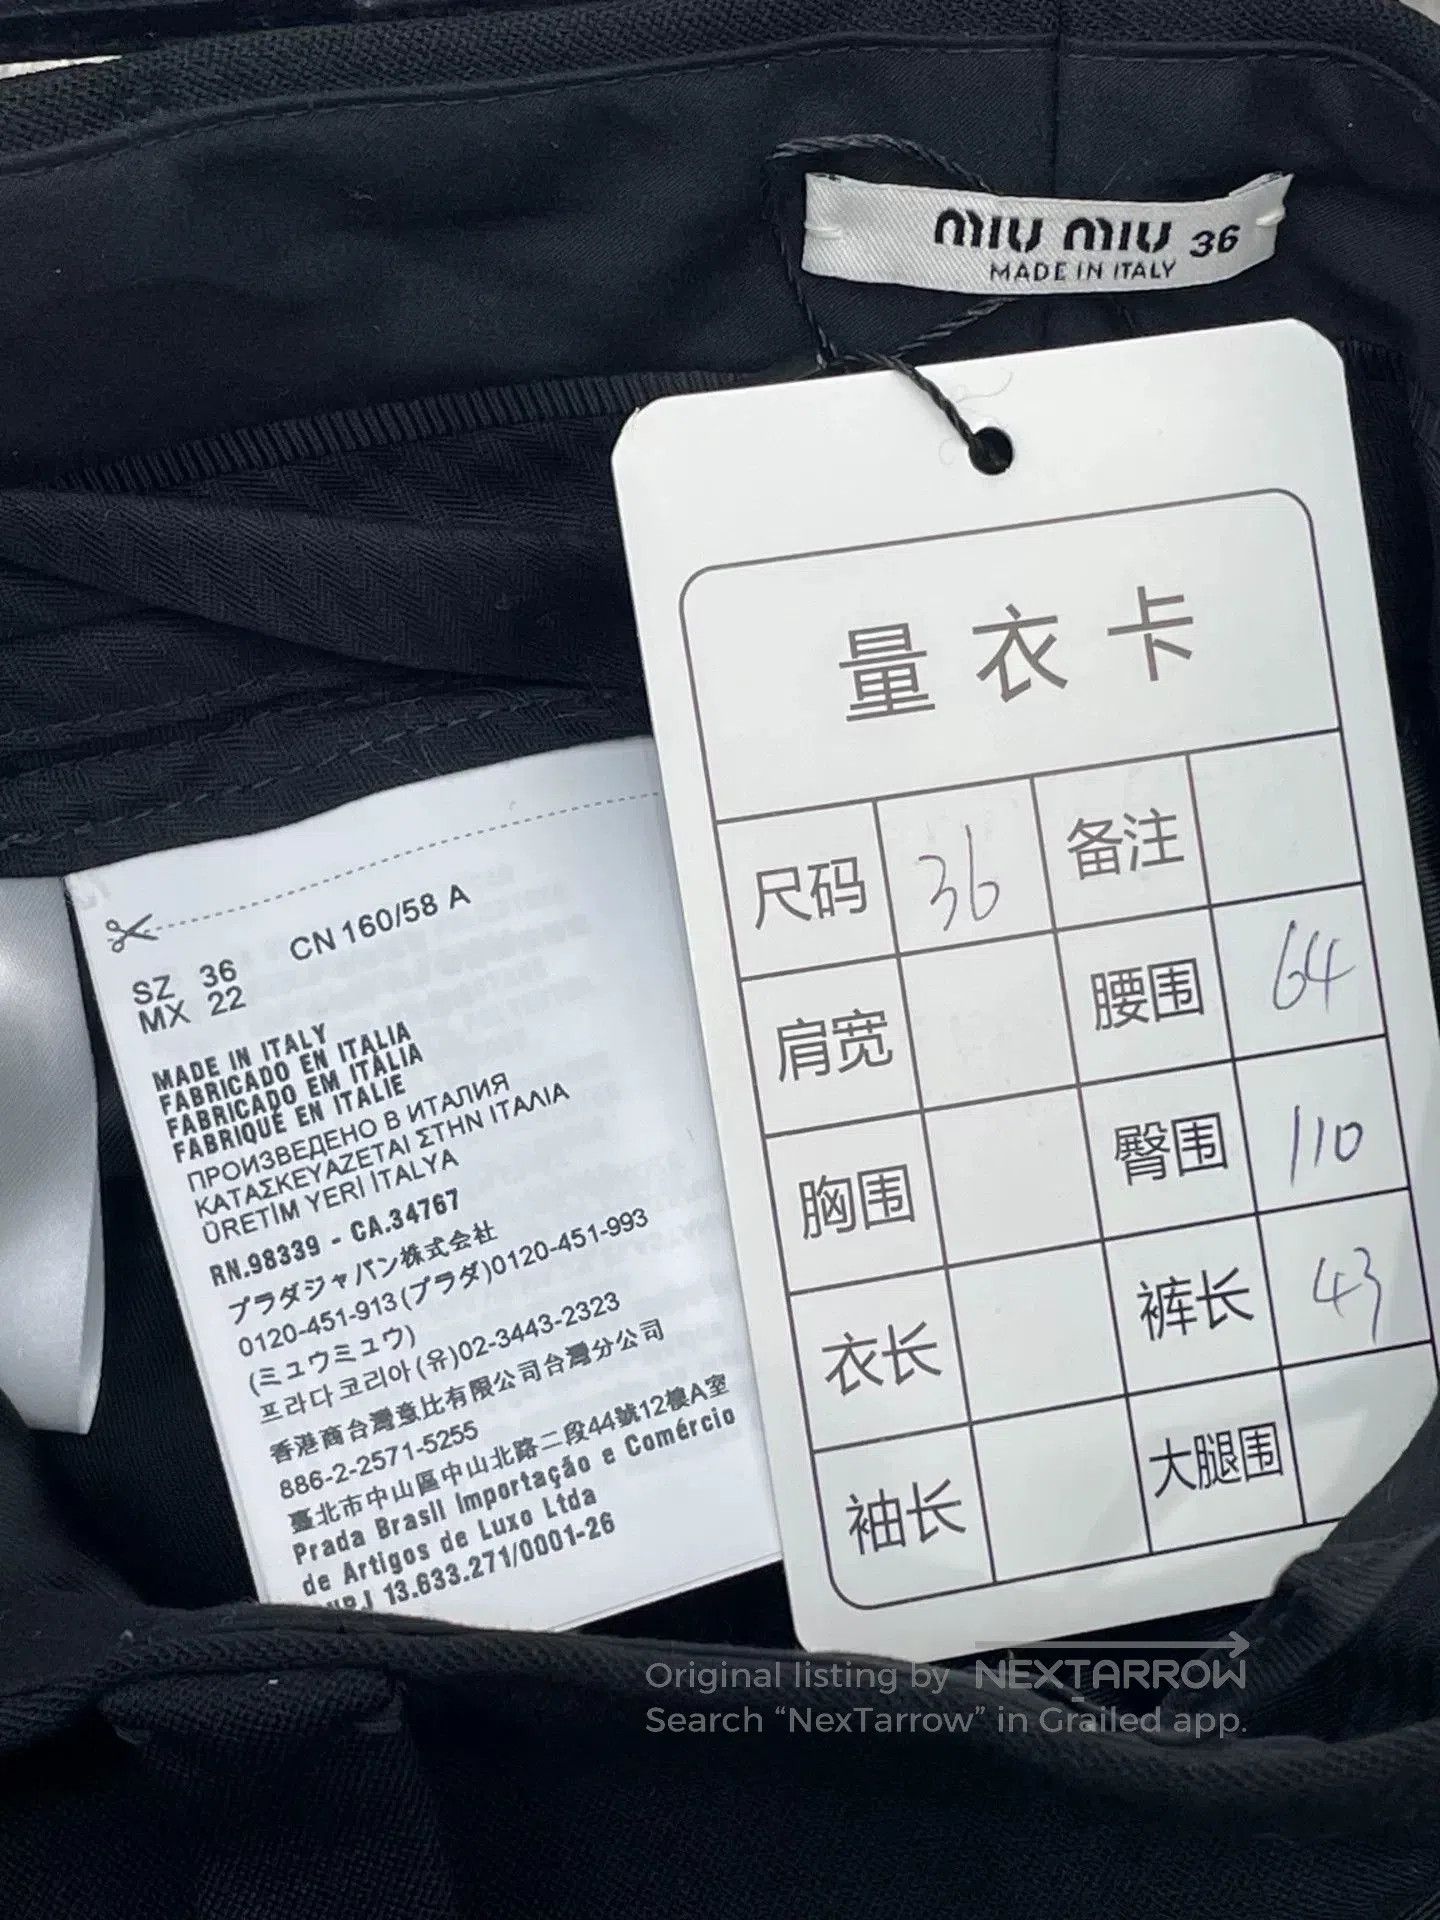 MIU MIU 36
MADE IN ITALY
量衣卡
尺码 36 备注
肩宽 腰围 64
胸围 臀围 110
衣长 裤长 43
袖长 大腿围
CN 160/58 A
SZ 36
MX 22
MADE IN ITALY
FABRICADO EN ITALIA
FABRICADO EM ITALIA
FABRIQUÉ EN ITALIE
ПРОИЗВЕДЕНО В ИТАЛИЯ
ΚΑΤΑΣΚΕΥΑΖΕΤΑΙ ΣΤΗΝ ΙΤΑΛΙΑ
ÜRETİM YERİ İTALYA
RN.98339 - CA.34767
プラダジャパン株式会社
0120-451-913(プラダ)0120-451-993
(ミュウミュウ)
프라다 코리아 (유)02-3443-2323
香港商台灣意比有限公司台灣分公司
886-2-2571-5255
臺北市中山區中山北路二段44號12樓A室
Prada Brasil Importação e Comércio
de Artigos de Luxo Ltda
13.633.271/0001-26
Original listing by NEXTARROW
Search “NexTarrow” in Grailed app.